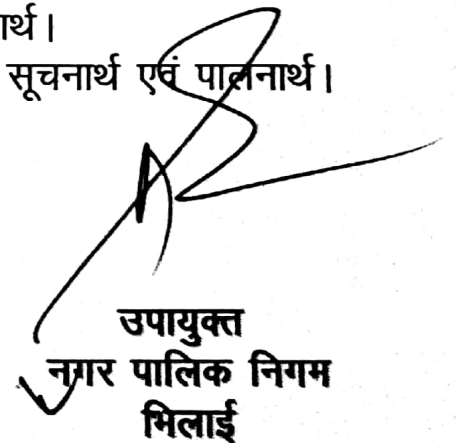 नार्थ।
सूचनार्थ एवं पालनार्थ।
उपायुक्त
नगर पालिक निगम
भिलाई